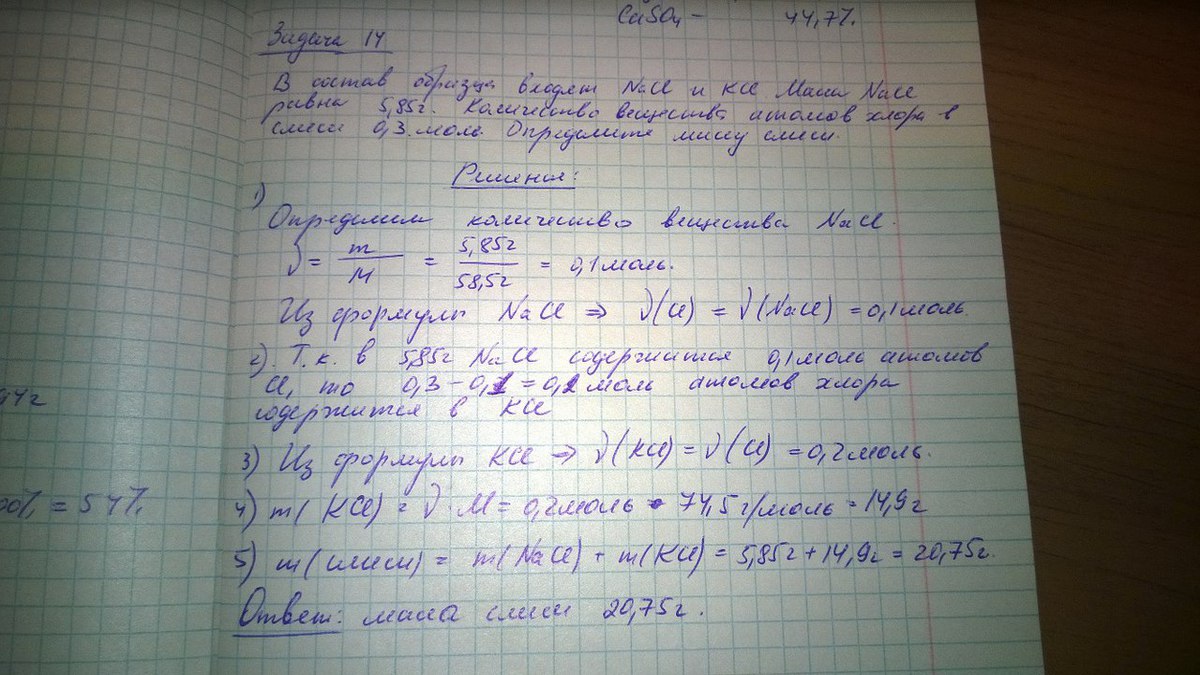 CaSO4 – 44,7%.
Задача 14
В состав образца входят NaCl и KCl Масса NaCl
равна 5,85г. Количество вещества атомов хлора в
смеси 0,3 моль. Определите массу смеси.
Решение:
1)
Определим количество вещества NaCl.
ν = m/M = 5,85г/58,5г = 0,1 моль.
Из формулы NaCl ⇒ ν(Cl) = ν(NaCl) = 0,1 моль
2). Т.к. в 5,85г NaCl содержится 0,1 моль атомов
Cl, то 0,3 – 0,1 = 0,2 моль атомов хлора
содержится в KCl
3) Из формулы KCl ⇒ ν(KCl) = ν(Cl) = 0,2 моль.
4) m(KCl) = ν · M = 0,2 моль • 74,5 г/моль = 14,9г
5) m(смеси) = m(NaCl) + m(KCl) = 5,85г + 14,9г = 20,75г.
Ответ: масса смеси 20,75г.
00%, = 54%.